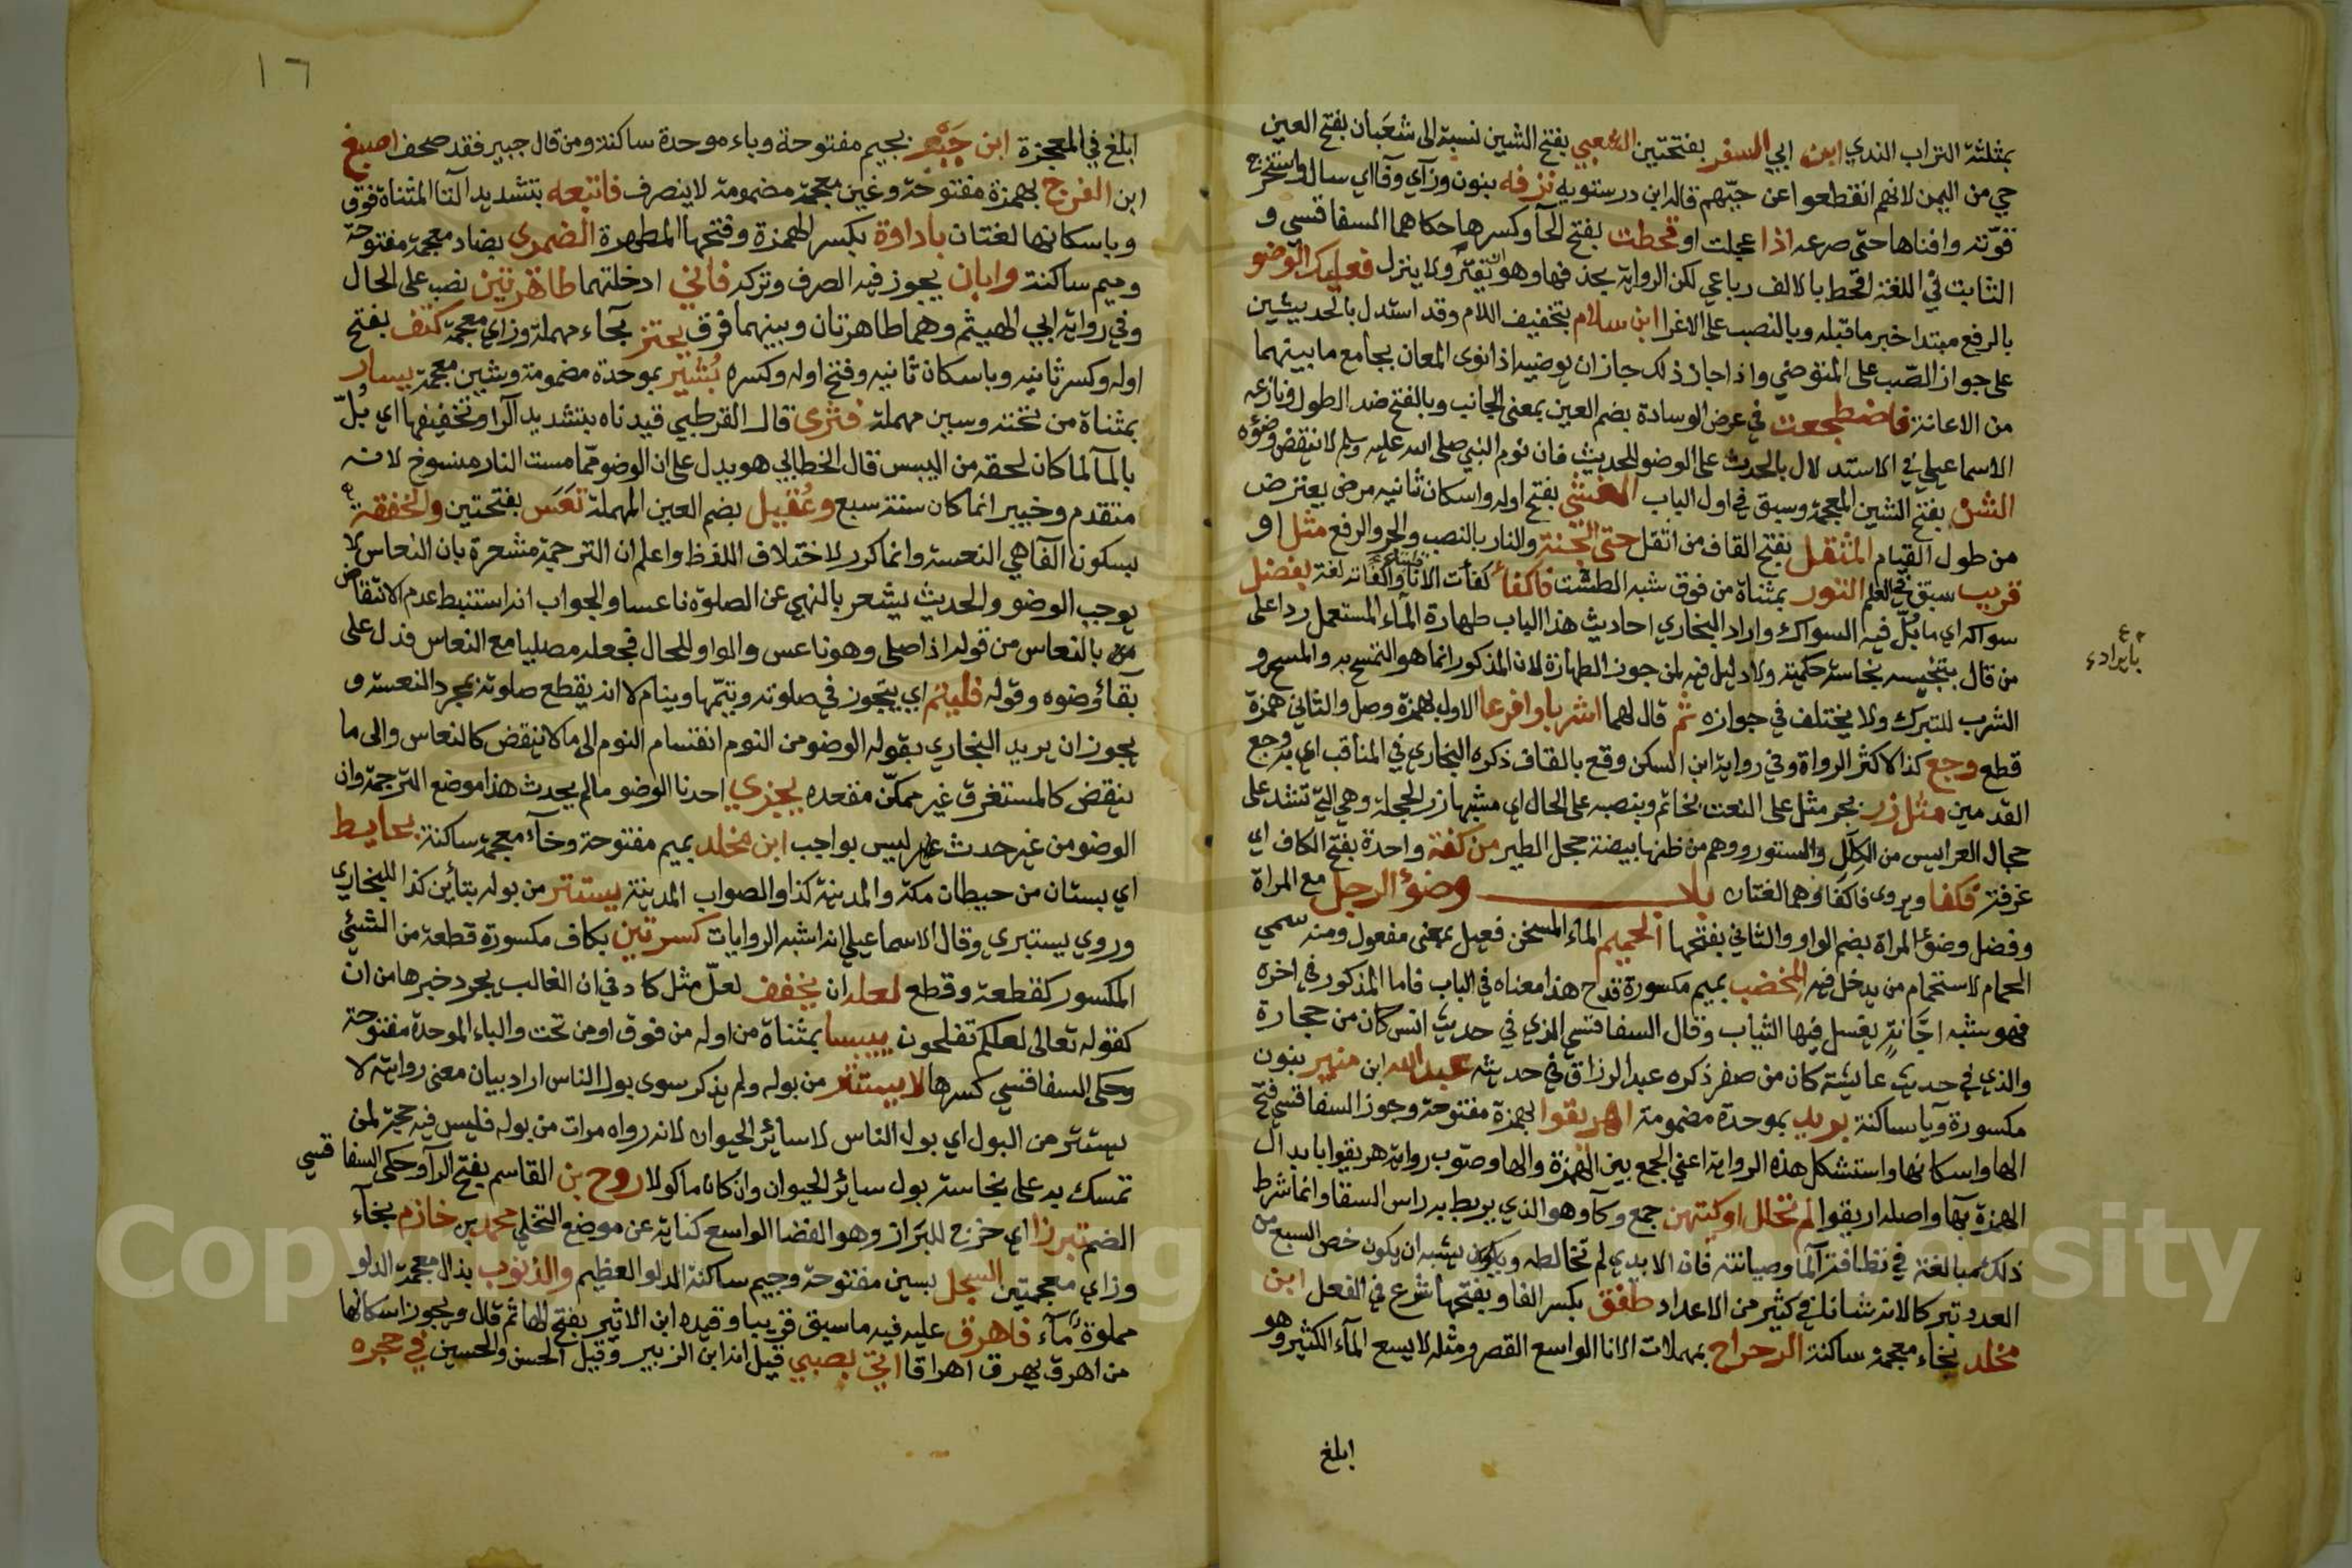 بمثلثة التراب الندي ابن ابي السفر بفتحتين الشعبي بفتح الشين نسبة الى شعبان بفتح العين
حي من اليمن لانهم انقطعوا عن حيّهم قاله ابن درستويه نزفه بنون وزآي وفآاي سال واستخرج
قوّته وافناها حتى صرعه اذا عجلت او قحطت بفتح الحآ وكسرها حكاهما السفاقسي و
الثابت في اللغة اقحط بالالف رباعي لكن الرواية بحذفها وهو ان يفتر ولا ينزل فعليك الوضو
بالرفع مبتدا خبر ما قبله وبالنصب على الاغرا ابن سلام بتخفيف اللام وقد استدل بالحديثين
على جواز الصّب على المتوضي واذا جاز ذلك جاز ان يوضيه اذا نوى المعان بجامع ما بينهما
من الاعانة فاضطجعت في عرض الوسادة بضم العين بمعنى الجانب وبالفتح ضد الطول ونازعه
الاسماعيلي في الاستدلال بالحدث على الوضو للحديث فان نوم النبي صلى الله عليه وسلم لا ينقض وضؤه
الشن بفتح الشين المعجمة وسبق في اول الباب الغشي بفتح اوله واسكان ثانيه مرض يعترض
من طول القيام المثقل بفتح القاف من اثقل حتى الجنة والنار بالنصب والجر والرفع مثل او
قريب سبق في العلم التور بمثناة من فوق شبه الطشت فاكفأ كفأت الانا واكفأته لغة بفضل
سواكه اي ما بُلّ فيه السواك واراد البخاري احاديث هذا الباب طهارة المآء المستعمل ردا على
م ع بايراده
من قال بتنجيسه نجاسة حكمية ولا دليل فيه لمن جوز الطهارة لان المذكور انما هو التمسح به والمسح و
الشرب للتبرك ولا يختلف في جوازه ثم قال لهما اشربا وافرغا الاول بهمزة وصل والثاني همزة
قطع وجع كذا لاكثر الرواة وفي رواية ابن السكن وقع بالقاف ذكره البخاري في المناقب اي وجع
القدمين مثل زر بجر مثل على النعت لخاتم وبنصبه على الحال اي مشبها زر الحجلة وهي التي تشد على
حجال العرايس من الكِلَل والستور ووهم من ظنها بيضة حجل الطير من كفة واحدة بفتح الكاف اي
غرفة فكفا ويروى فاكفا وهما لغتان باب وضوء الرجل مع المراة
وفضل وضوء المراة بضم الواو والثاني بفتحها الحميم الماء المسخن فعيل بمعنى مفعول ومنه سمي
الحمام لاستحمام من يدخل فيه المخضب بميم مكسورة قدح هذا معناه في الباب فاما المذكور في اخره
فهو شبه اجّانة يغسل فيها الثياب وقال السفاقسي الذي في حديث انس كان من حجارة
والذي في حديث عايشة كان من صفر ذكره عبد الرزاق في حديثه عبد الله ابن منير بنون
مكسورة ويآ ساكنة بريد بموحدة مضمومة اهريقوا بهمزة مفتوحة وجوز السفاقسي فتح
الها واسكانها واستشكل هذه الرواية اعني الجمع بين الهمزة والها وصوّب رواية هريقوا بابدال
الهمزة بها واصله اريقوا لم تحلل اوكيتهن جمع وكآ وهو الذي يربط به راس السقا وانما شرط
ذلك مبالغة في نظافة المآ وصيانته فان الايدي لم تخالطه ويشبه ان يكون خص السبع من
العدد تبركا لان شانه في كثير من الاعداد طفق بكسر الفا وبفتحها شرع في الفعل ابن
مخلد بخاء معجمة ساكنة الرحراح بمهملات الانا الواسع القصر ومثله لا يسع المآء الكثير وهو
ابلغ
١٦
ابلغ في المعجزة ابن جَبْر بجيم مفتوحة وباء موحدة ساكنة ومن قال جبير فقد صحف اصبغ
ابن الفرج بهمزة مفتوحة وغين معجمة مضمومة لا ينصرف فاتبعه بتشديد التا المثناة فوق
وباسكانها لغتان باداوة بكسر الهمزة وفتحها المطهرة الضمري بضاد معجمة مفتوحة
وميم ساكنة وابان يجوز فيه الصرف وتركه فاني ادخلتهما طاهرتين نصب على الحال
وفي رواية ابي الهيثم وهما طاهرتان وبينهما فرق يحتز بحآء مهملة وزاي معجمة كتف بفتح
اوله وكسر ثانيه وباسكان ثانيه وفتح اوله وكسره بُشير بموحدة مضمومة وشين معجمة يسار
بمثناة من تحته وسين مهملة فثري قال القرطبي قيدناه بتشديد الرا وتخفيفها اي بُلّ
بالمآ لما كان لحقه من اليبس قال الخطابي هو يدل على ان الوضو ممّا مست النار منسوخ لانه
متقدم وخيبر انما كان سنة سبع وعُقيل بضم العين المهملة نعَس بفتحتين والخفقة
بسكون الفا هي النعسة وانما كرر لاختلاف اللفظ واعلم ان الترجمة مشعرة بان النعاس لا
يوجب الوضو والحديث يشعر بالنهي عن الصلوة ناعسا والجواب انه استنبط عدم الانتقاض
بالنعاس من قوله اذا صلى وهو ناعس والواو للحال فجعله مصليا مع النعاس فدل على
بقآء وضوه وقوله فلينم اي يتجوز في صلوته ويتمّها وينام لا انه يقطع صلوته بمجرد النعسة و
يجوز ان يريد البخاري بقوله الوضو من النوم انقسام النوم الى ما لا ينقض كالنعاس والى ما
ينقض كالمستغرق غير ممكّن مقعده يجزي احدنا الوضو ما لم يحدث هذا موضع الترجمة وان
الوضو من غير حدث ليس بواجب ابن مخلد بميم مفتوحة وخآء معجمة ساكنة بحايط
اي بستان من حيطان مكة والمدينة كذا والصواب المدينة يستتر من بوله بتأين كذا للبخاري
وروي يستبري وقال الاسماعيلي انه اشبه الروايات كسرتين بكاف مكسورة قطعة من الشئي
المكسور كقطعة وقطع لعله ان يخفف لعلّ مثل كاد في ان الغالب يجرد خبرها من ان
كقوله تعالى لعلكم تفلحون ييبسا بمثناة من اوله من فوق او من تحت والباء الموحدة مفتوحة
وحكى السفاقسي كسرها لا يستتر من بوله ولم يذكر سوى بول الناس اراد بيان معنى روايته لا
يستتر من البول اي بول الناس لا سائر الحيوان لانه رواه مرات من بوله فليس فيه حجة لمن
تمسك به على نجاسة بول سائر الحيوان وان كان ماكولا روح بن القاسم بفتح الرآ وحكى السفاقسي
الضم تبرزا اي خرج للبَراز وهو الفضا الواسع كناية عن موضع التخلي محمد بن خازم بخآء
وزاي معجمتين السجل بسين مفتوحة وجيم ساكنة الدلو العظيم والذنوب بذال معجمة الدلو
مملوة مآء فاهرق عليه فيه ما سبق قريبا وقيده ابن الاثير بفتح الها ثم قال ويجوز اسكانها
من اهرق يهرق اهراقا اتي بصبي قيل انه ابن الزبير وقيل الحسن والحسين في حجره